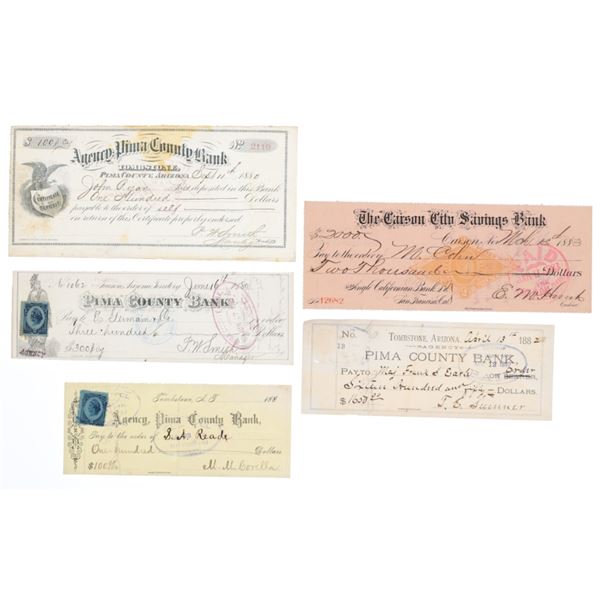 $ 100 00/100
Agency, Pima County Bank
No 2110
TOMBSTONE,
PIMA COUNTY, ARIZONA, 1880
CERTIFICATE OF DEPOSIT
John Ryan has deposited in this Bank
One Hundred Dollars
payable to the order of self
in return of this Certificate properly endorsed
P. W. Smith
Tucson, Arizona Territory June 1880
PIMA COUNTY BANK,
Pay to & Co. or order
Three hundred Dollars
$300 00/xx
P. W. Smith
Manager
AGENCY
Tombstone, A.T. 188
Agency, Pima County Bank,
Pay to the order of S. A. Reade
One hundred Dollars
$100 00/xx
M. M. Corella
The Carson City Savings Bank
$2000 00/xx
Carson, Nev. 1883
Pay to the order of M. Cohn
Two Thousand Dollars
PAID
To Anglo Californian Bank Ld.
San Francisco, Cal.
No 12082
Cashier
No.
TOMBSTONE, ARIZONA, April 13th 1882
AGENCY
PIMA COUNTY BANK,
PAY TO Maj. Frank S. Earle OR BEARER, Order
Sixteen hundred and DOLLARS.
T. E. Sumner